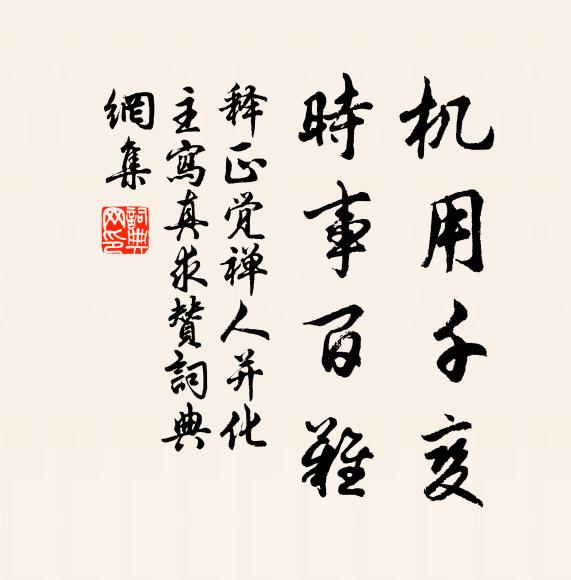 机用千变
時事百難
释正觉禅人并化
主寫真求贊詞典
網集
詞典網印